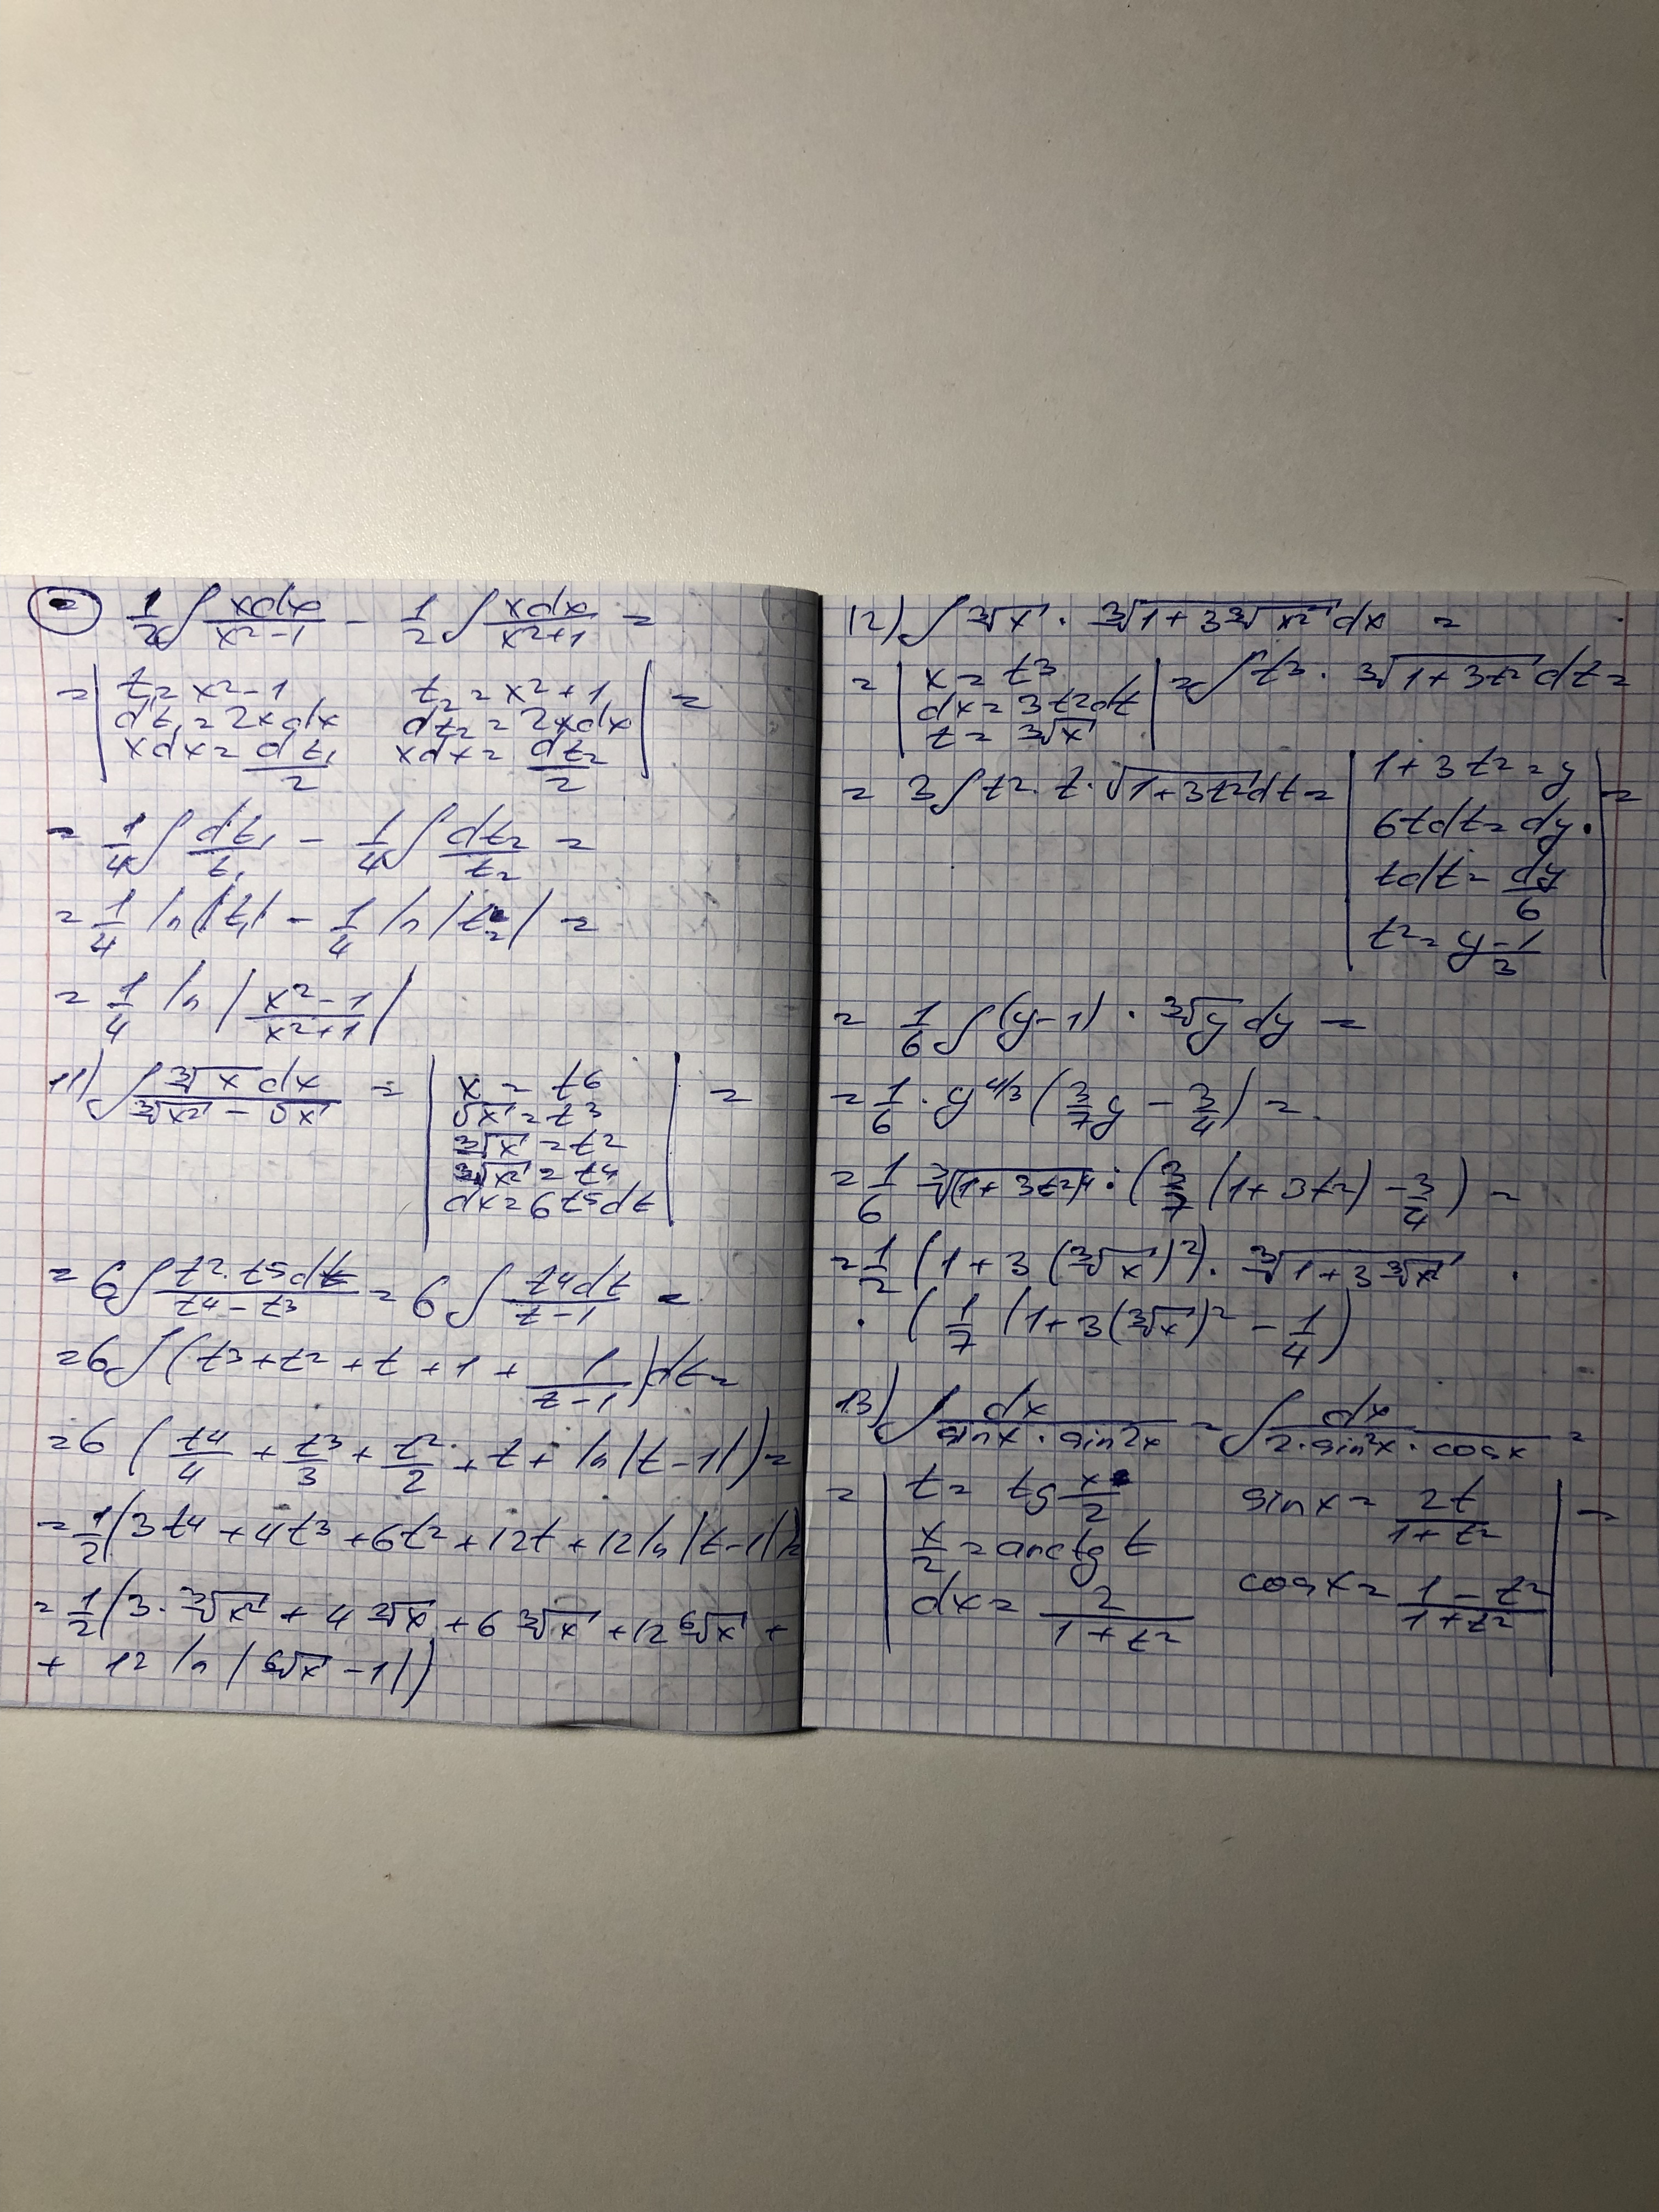 = 1/2 ∫ xdx/(x²-1) - 1/2 ∫ xdx/(x²+1) =
= | t₁ = x²-1 t₂ = x²+1 | =
dt₁ = 2xdx dt₂ = 2xdx
xdx = dt₁/2 xdx = dt₂/2
= 1/4 ∫ dt₁/t₁ - 1/4 ∫ dt₂/t₂ =
= 1/4 ln|t₁| - 1/4 ln|t₂| =
= 1/4 ln |(x²-1)/(x²+1)|
11) ∫ ∛x dx/(∛x² - √x) = | x = t⁶ | =
√x = t³
∛x = t²
∛x² = t⁴
dx = 6t⁵dt
= 6∫ t²·t⁵dt/(t⁴-t³) = 6∫ t⁴dt/(t-1) =
= 6∫(t³+t²+t+1+1/(t-1))dt =
= 6(t⁴/4 + t³/3 + t²/2 + t + ln|t-1|) =
= 1/2(3t⁴+4t³+6t²+12t+12ln|t-1|) =
= 1/2(3·∛x² + 4√x + 6∛x + 12⁶√x +
+ 12 ln|⁶√x - 1|)
12) ∫ ∛x · ∛(1+3∛x²) dx =
= | x = t³ | = ∫ t³ · ∛(1+3t²) dt =
dx = 3t²dt
t = ∛x
= 3∫ t²·t·√(1+3t²)dt = | 1+3t² = y | =
6tdt = dy
tdt = dy/6
t² = (y-1)/3
= 1/6 ∫ (y-1) · ∛y dy =
= 1/6 · y^(4/3) (3/7 y - 3/4) =
= 1/6 ∛(1+3t²)⁴ · (3/7 (1+3t²) - 3/4) =
= 1/2 (1+3(∛x)²) · ∛(1+3∛x²) ·
· (1/7 (1+3(∛x)² - 1/4)
13) ∫ dx/(sinx · sin2x) = ∫ dx/(2·sin²x · cosx) =
= | t = tg x/2 sinx = 2t/(1+t²) | =
x/2 = arctg t
dx = 2/(1+t²) cosx = (1-t²)/(1+t²)